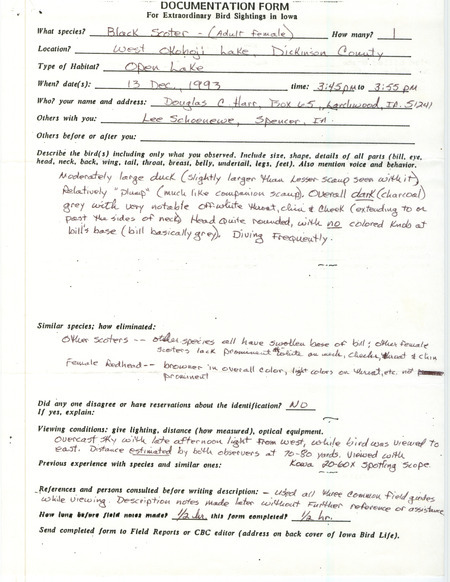 DOCUMENTATION FORM
For Extraordinary Bird Sightings in Iowa
What species? Black Scoter - (Adult female) How many? 1
Location? West Okoboji Lake, Dickinson County
Type of Habitat? Open Lake
When? date(s): 13 Dec, 1993 time: 3:45 pm to 3:55 pm
Who? your name and address: Douglas C. Harr, Box 65, Larchwood, IA. 51241
Others with you: Lee Schoenewe, Spencer, IA.
Others before or after you:
Describe the bird(s) including only what you observed. Include size, shape, details of all parts (bill, eye,
head, neck, back, wing, tail, throat, breast, belly, undertail, legs, feet). Also mention voice and behavior.
Moderately large duck (slightly larger than Lesser Scaup seen with it)
Relatively "plump" (much like companion scaup). Overall dark (charcoal)
grey with very notable off-white throat, chin & cheek (extending to or
past the sides of neck) Head quite rounded, with no colored knob at
bill's base (bill basically grey). Diving frequently.
Similar species; how eliminated:
Other scoters -- other species all have swollen base of bill; other female
scoters lack prominent white on neck, cheeks, throat & chin
Female Redhead -- browner in overall color, light colors on throat, etc. not
prominent
Did any one disagree or have reservations about the identification? NO
If yes, explain:
Viewing conditions: give lighting, distance (how measured), optical equipment.
Overcast sky with late afternoon light from west, while bird was viewed to
east. Distance estimated by both observers at 70-80 yards. Viewed with
Previous experience with species and similar ones: Kowa 20-60X spotting scope.
References and persons consulted before writing description: - Used all three common field guides
while viewing. Description notes made later without further reference or assistance
How long before field notes made? 1/2 hr. this form completed? 1/2 hr.
Send completed form to Field Reports or CBC editor (address on back cover of Iowa Bird Life).